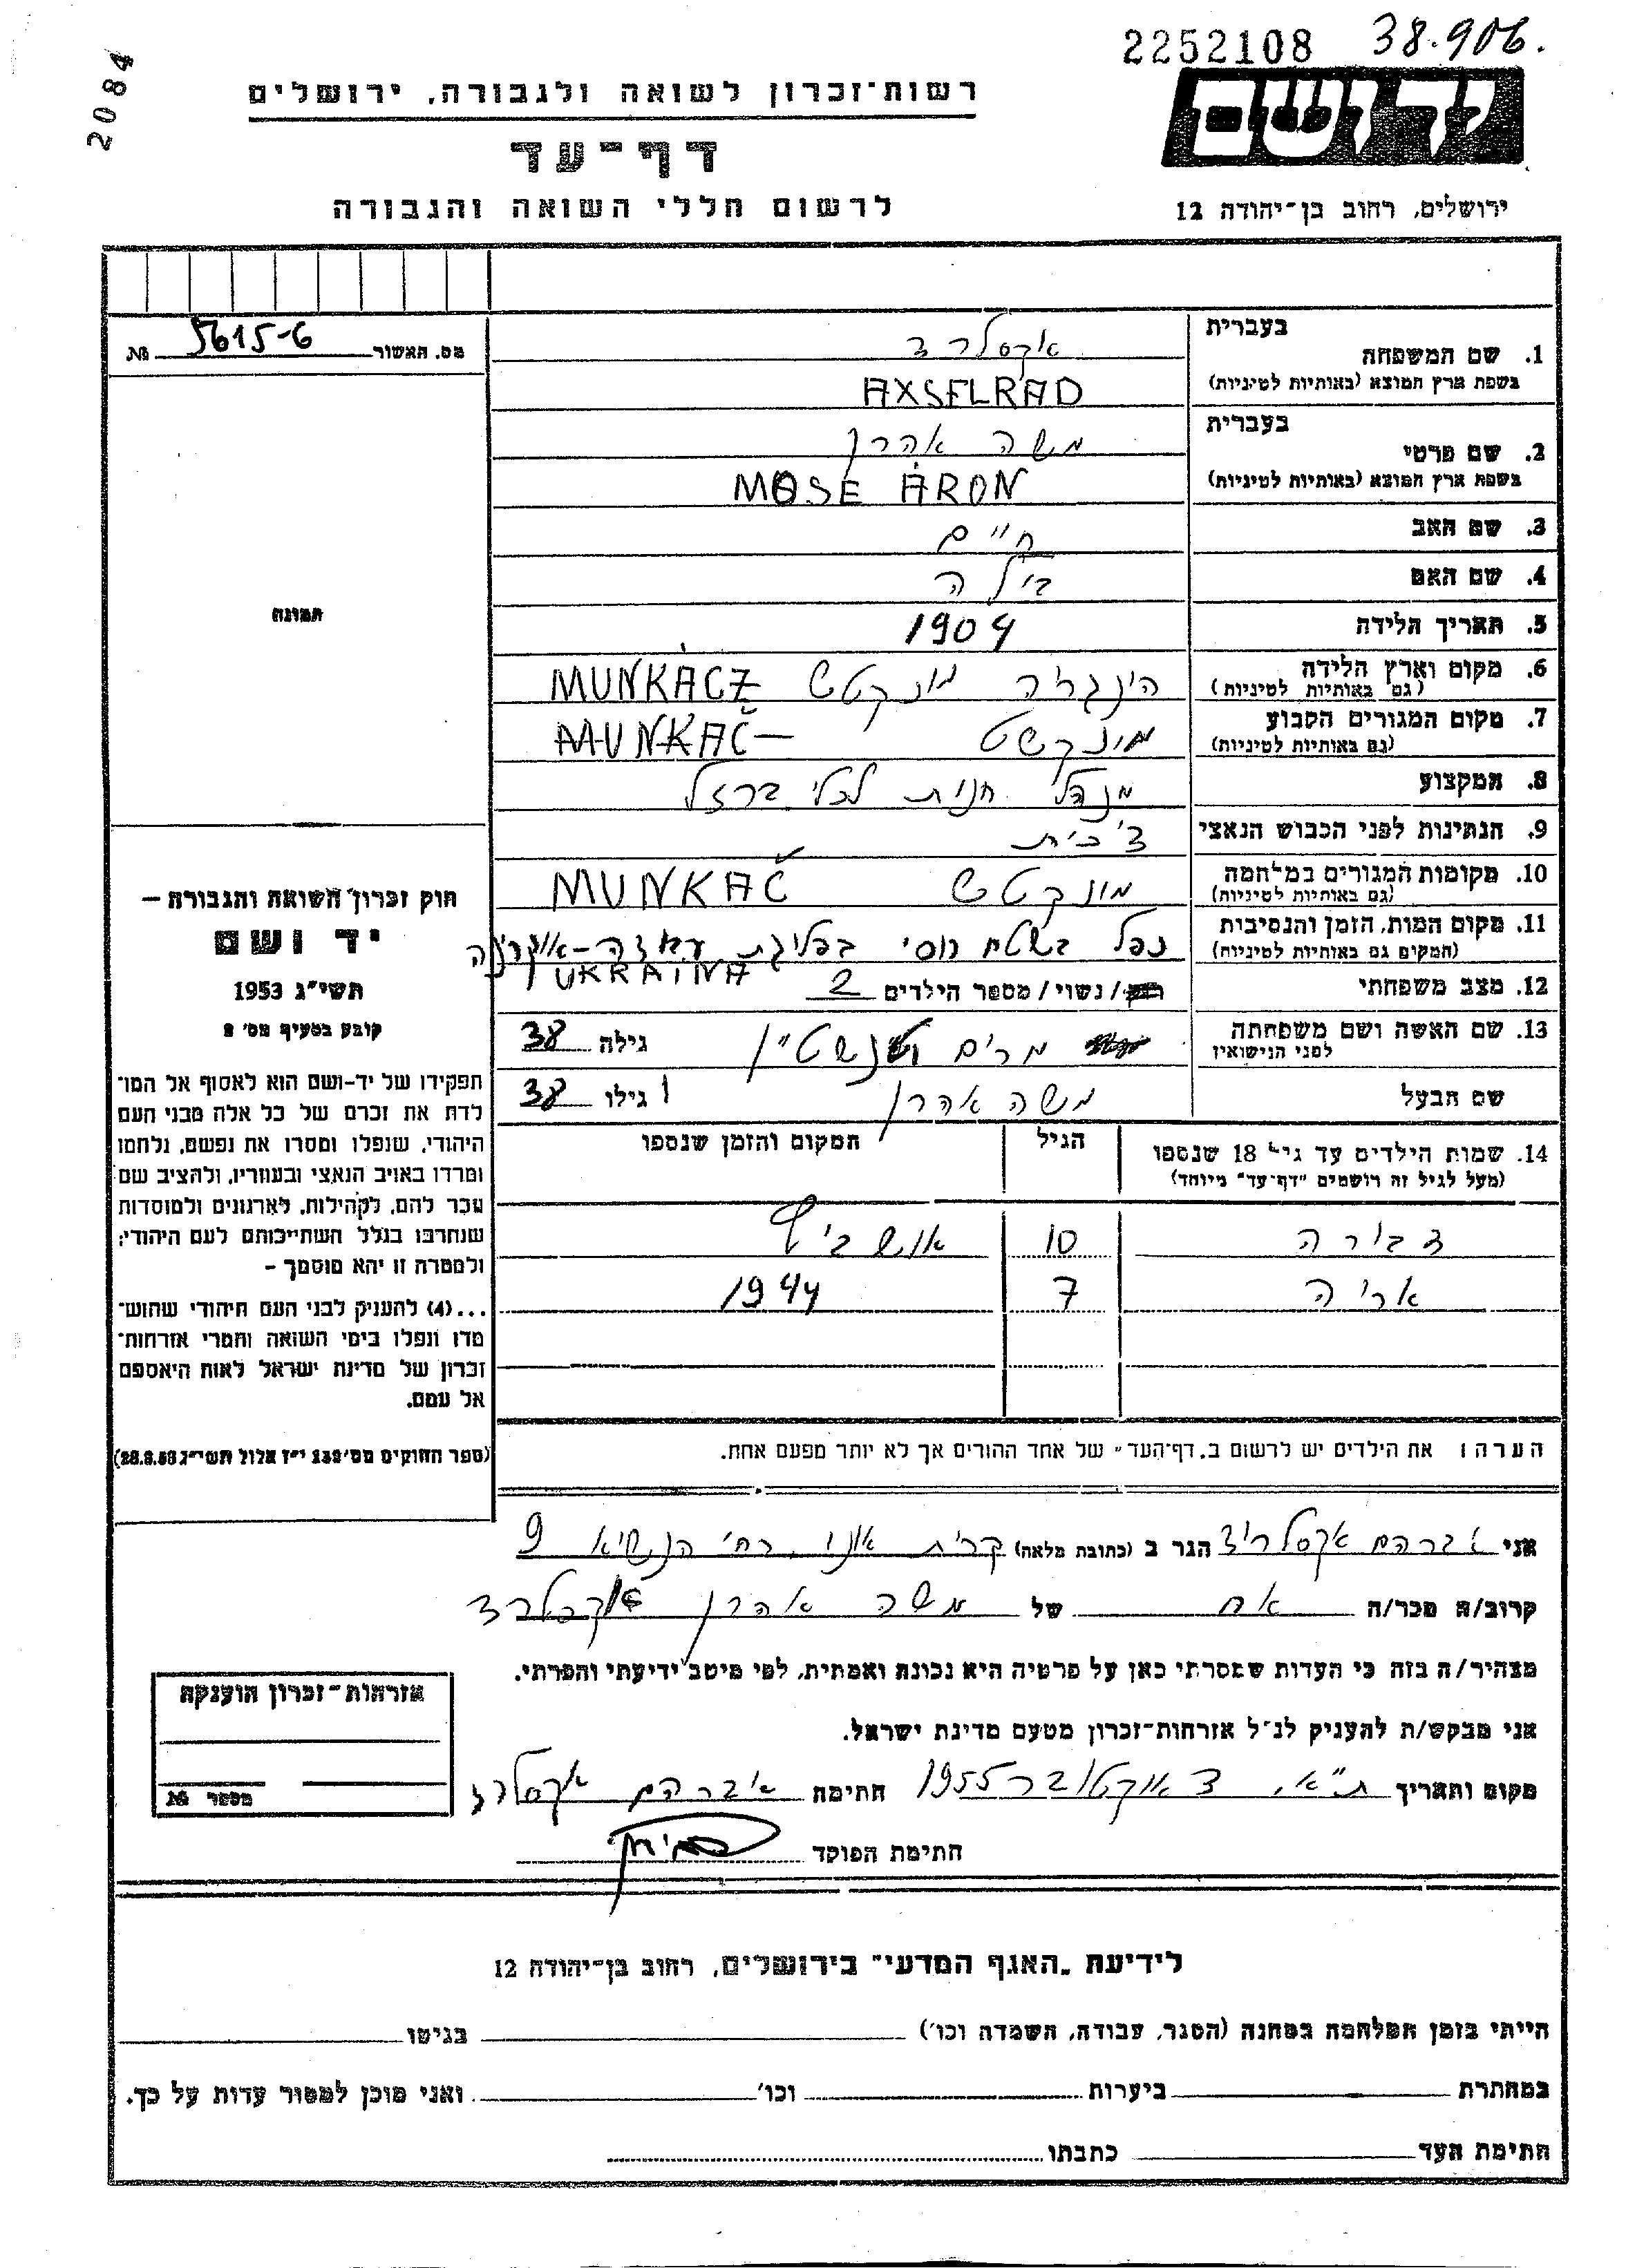 2084
2252108 38.906.
רשות־זכרון לשואה ולגבורה, ירושלים
ידושם
דף־עד
לרשום חללי השואה והגבורה
ירושלים, רחוב בן־יהודה 12
מס. האשור 5615-6 №
תמונה
חוק זכרון השואה והגבורה –
יד ושם
תשי״ג 1953
קובע בסעיף מס׳ 2
תפקידו של יד-ושם הוא לאסוף אל המו־
לדת את זכרם של כל אלה מבני העם
היהודי, שנפלו ומסרו את נפשם, נלחמו
ומרדו באויב הנאצי ובעוזריו, ולהציב שם
וזכר להם, לקהילות, לארגונים ולמוסדות
שנחרבו בגלל השתייכותם לעם היהודי;
ולמטרה זו יהא מוסמך –
...(4) להעניק לבני העם היהודי שהוש־
מדו ונפלו בימי השואה והמרי אזרחות־
זכרון של מדינת ישראל לאות היאספם
אל עמם.
(ספר החוקים מס׳ 132 י״ז אלול תשי״ג 28.8.53)
בעברית
1. שם המשפחה אקסלרד
בשפת ארץ המוצא (באותיות לטיניות) AXSELRAD
בעברית
2. שם פרטי משה אהרן
בשפת ארץ המוצא (באותיות לטיניות) MOSE ÁRON
3. שם האב חיים
4. שם האם בילה
5. תאריך הלידה 1904
6. מקום וארץ הלידה הונגריה מונקטש MUNKÁCZ
(גם באותיות לטיניות)
7. מקום המגורים הקבוע מונקשט MUNKAČ –
(גם באותיות לטיניות)
8. המקצוע מנהל חנות לכלי ברזל
9. הנתינות לפני הכבוש הנאצי צ׳כית
10. מקומות המגורים במלחמה מונקטש MUNKAČ
(גם באותיות לטיניות)
11. מקום המות, הזמן והנסיבות נפל בשטח רוסי בפלוגת עבודה – אוקרינה
(המקום גם באותיות לטיניות) UKRAINA
12. מצב משפחתי רוק/נשוי/מספר הילדים 2
13. שם האשה ושם משפחתה מרים גילה 38
לפני הנישואין
שם הבעל משה אהרן גילו 38
14. שמות הילדים עד גיל 18 שנספו הגיל המקום והזמן שנספו
(מעל לגיל זה רושמים ״דף־עד״ מיוחד)
דבורה 10 אושביץ
אריה 7 1944
הערה: את הילדים יש לרשום ב„דף־העד״ של אחד ההורים אך לא יותר מפעם אחת.
אני אברהם אקסלרד הגר ב (כתובת מלאה) קרית אונו, רח׳ הנשיא 9
קרוב/ה מכר/ה אח של משה אהרן אקסלרד
מצהיר/ה בזה כי העדות שמסרתי כאן על פרטיה היא נכונה ואמתית, לפי מיטב ידיעתי והכרתי.
אני מבקש/ת להעניק לנ״ל אזרחות־זכרון מטעם מדינת ישראל.
מקום ותאריך ת״א, 3 אוקטובר 1955 חתימה אברהם אקסלרד
חתימת הפוקד
אזרחות־זכרון הוענקה
מספר №
לידיעת „האגף המדעי״ בירושלים, רחוב בן־יהודה 12
הייתי בזמן המלחמה במחנה (הסגר, עבודה, השמדה וכו׳) בגיטו
במחתרת ביערות וכו׳ ואני מוכן למסור עדות על כך.
חתימת העד כתבתו